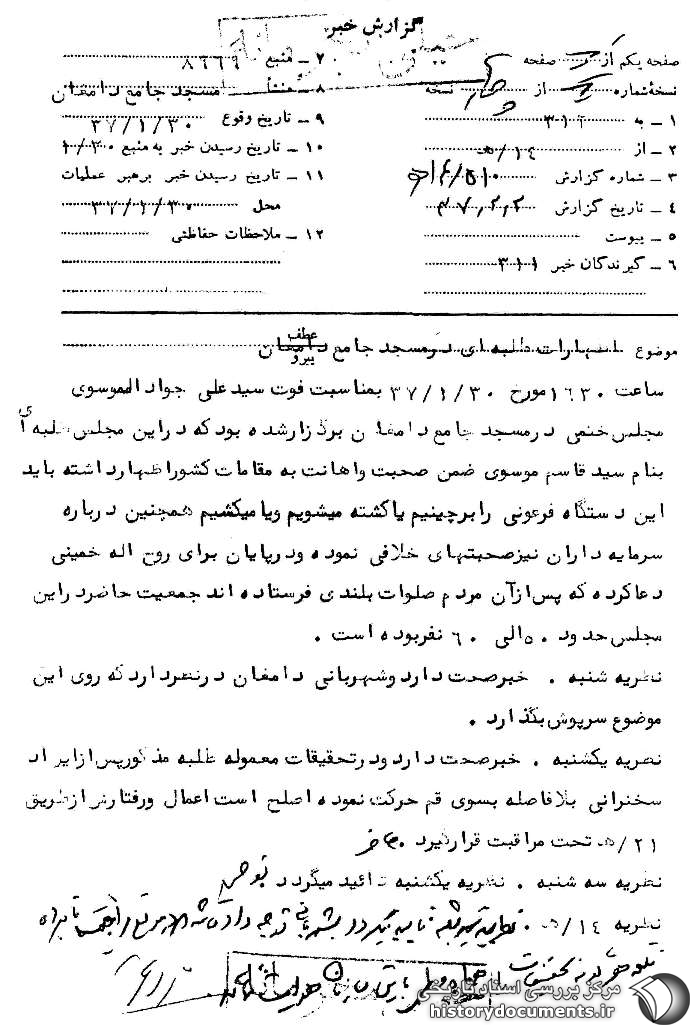 گزارش خبر
صفحه یکم از صفحه
نسخه شماره از نسخه
۱ ـ به ۳۱۲
۲ ـ از ۱۴/ه
۳ ـ شماره گزارش
۴ ـ تاریخ گزارش ۳۷/۲/۲
۵ ـ پیوست
۶ ـ گیرندگان خبر ۳۱۱
۷ ـ منبع ۸۶۶۹
۸ ـ منشأ مسجد جامع دامغان
۹ ـ تاریخ وقوع ۳۷/۱/۳۰
۱۰ ـ تاریخ رسیدن خبر به منبع ۱/۳۰
۱۱ ـ تاریخ رسیدن خبر برهبر عملیات
محل ۳۷/۱/۳۰
۱۲ ـ ملاحظات حفاظتی
موضوع اظهارات طلبه ای در مسجد جامع دامغان
عطف
پیرو
ساعت ۱۶۳۰ مورخ ۳۷/۱/۳۰ بمناسبت فوت سید علی جواد الموسوی
مجلس ختمی در مسجد جامع دامغان برگزار شده بود که در این مجلس طلبه أی
بنام سید قاسم موسوی ضمن صحبت و اهانت به مقامات کشور اظهار داشته باید
این دستگاه فرعونی را برچینیم یا کشته میشویم و یا میکشیم همچنین درباره
سرمایه داران نیز صحبتهای خلافی نموده و درپایان برای روح اله خمینی
دعا کرده که پس از آن مردم صلوات بلندی فرستاده اند جمعیت حاضر در این
مجلس حدود ۵۰ الی ۶۰ نفر بوده است .
نظریه شنبه . خبر صحت دارد و شهربانی دامغان در نظر دارد که روی این
موضوع سرپوش بگذارد .
نظریه یکشنبه . خبر صحت دارد و در تحقیقات معموله طلبه مذکور پس از ایراد
سخنرانی بلافاصله بسوی قم حرکت نموده اصلح است اعمال و رفتارش از طریق
۲۱/ه تحت مراقبت قرار گیرد .
نظریه سه شنبه . نظریه یکشنبه تائید میگردد
نظریه ۱۴/ه .
مرکز بررسی اسناد تاریخی
historydocuments.ir